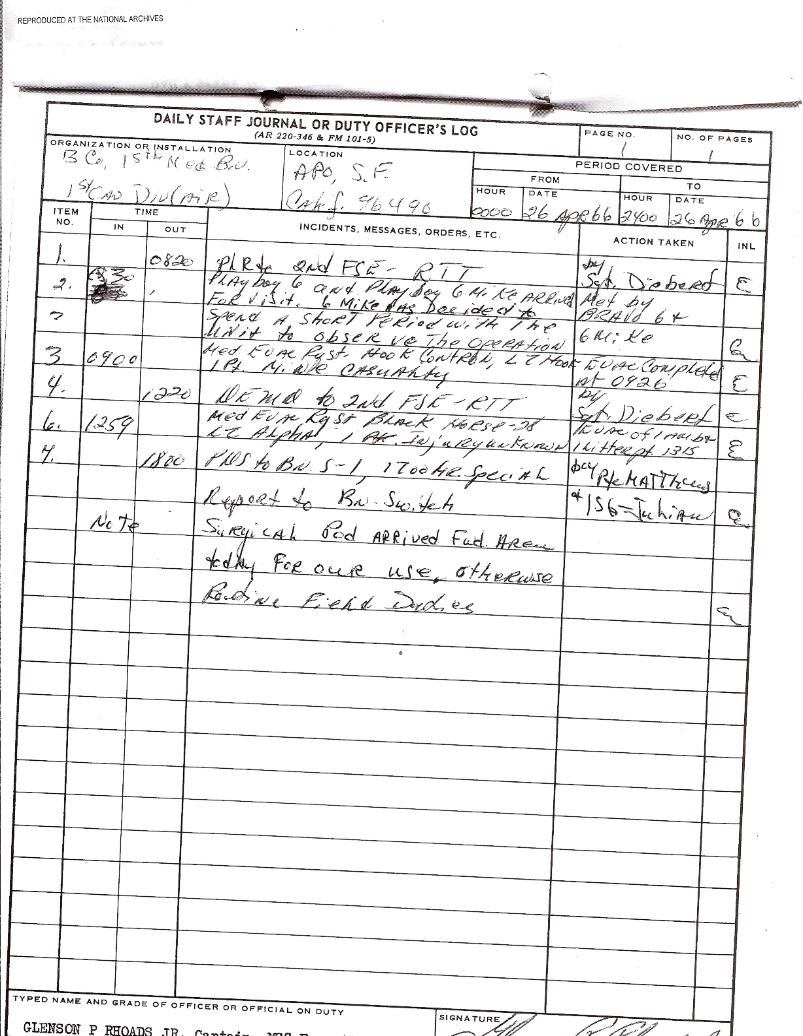 REPRODUCED AT THE NATIONAL ARCHIVES
DAILY STAFF JOURNAL OR DUTY OFFICER'S LOG
(AR 220-346 & FM 101-5)
PAGE NO.
1
NO. OF PAGES
1
ORGANIZATION OR INSTALLATION
B Co, 15th Med Bn.
1st Cav Div (AIR)
LOCATION
APO, S.F.
Calif. 96490
PERIOD COVERED
FROM
TO
HOUR
0000
DATE
26 APR 66
HOUR
2400
DATE
26 Apr 66
ITEM NO.
TIME
IN
OUT
INCIDENTS, MESSAGES, ORDERS, ETC.
ACTION TAKEN
INL
1. 0820 to 2nd FSE - RTT by Sgt. Diebert
2. PlAyboy 6 and PlAyboy 6 Mike ARRIVED Met by
FOR Visit. 6 Mike has Decided to BRAVO 6 +
Spend A Short Period with The 6 Mike
Unit to observe The OPERATION
3 0900 Med EVAC Rqst. HOOK CONTROL, LZ Hook EVAC Complete
1 Pt. Mine CASUAlty At 0926
4. 1220 to 2ND FSE - RTT by Sgt. Diebert
6. 1259 Med EVAC Rqst BlAck HORSE-28 EVAC of 1 Amb +
LZ Alpha, 1 Pt. Injury unknown 1 litter pt 1315
4. 1800 to Bn. S-1, 1700 Hr. Special by Pfc MATThews
Report to Bn. Switch + 1SG Julian
Note Surgical Pod ARRived Fwd. Area
today FOR our use, otherwise
Routine Field Duties
TYPED NAME AND GRADE OF OFFICER OR OFFICIAL ON DUTY
GLENSON P RHOADS JR, Captain, MSC
SIGNATURE